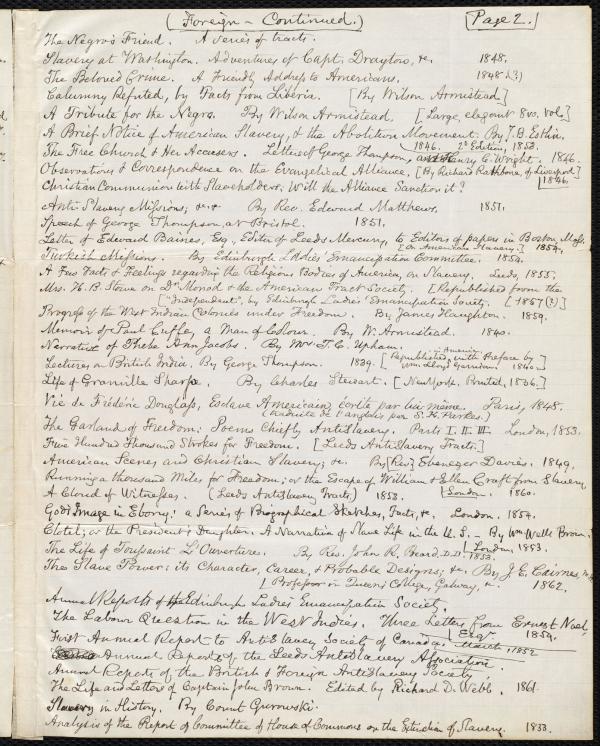 (Foreign - Continued.) [Page 2.]
The Negro's Friend. A series of tracts.
Slavery at Washington. Adventures of Capt. Drayton, &c. 1848.
The Beloved Crime. A Friendly Address to Americans. 1848
Calumny Refuted, by Facts from Liberia. [By Wilson Armistead]
A Tribute for the Negro. By Wilson Armistead, [Large, elegant 8vo. vol.]
A Brief Notice of American Slavery, & the Abolition Movement. By J. B. Estlin.
1846. 2d Edition, 1853.
The Free Church & Her Accusers. Letters of George Thompson, and Henry C. Wright. 1846.
Observations & Correspondence on the Evangelical Alliance, [By Richard Rathbone, of Liverpool]
[1846.
Christian Communion with Slaveholders; Will the Alliance Sanction it?
Anti-Slavery Missions; &c. By Rev. Edward Matthews. 1851.
Speech of George Thompson, at Bristol. 1851.
Letter of Edward Baines, Esq., Editor of Leeds Mercury, to Editors of papers in Boston, Mass.
[on American Slavery.] 1854.
Turkish Missions. By Edinburgh Ladies' Emancipation Committee. 1854.
A Few Facts & Feelings regarding the Religious Bodies of America, on Slavery. Leeds, 1855.
Mrs. H. B. Stowe on Dr. Monod & the American Tract Society. [Republished from the
["Independent", by Edinburgh Ladies' Emancipation Society. [1857(?)]
Progress of the West Indian Colonies under Freedom. By James Haughton. 1859.
Memoir of Paul Cuffe, a Man of Colour. By W. Armistead. 1840.
Narrative of Phebe Ann Jacobs. By Mrs T. C. Upham.
Lectures on British India. By George Thompson. 1839. [Republished in America, with Preface by
Wm. Lloyd Garrison. 1840.]
Life of Granville Sharpe. By Charles Stewart. [New York, Printed, 1836.]
Vie de Frédéric Douglass, Esclave Americain, écrite par lui-même. Paris, 1848.
(traduite de l'anglais par S. K. Parkes.)
The Garland of Freedom; Poems Chiefly AntiSlavery. Parts I. II. III. London, 1853.
Five Hundred Thousand Strokes for Freedom. [Leeds AntiSlavery Tracts.]
American Scenes and Christian Slavery; &c. By [Rev.] Ebenezer Davies. 1849.
Running a thousand Miles for Freedom; or the Escape of William & Ellen Craft from Slavery.
[London. 1860.
A Cloud of Witnesses. (Leeds AntiSlavery Tracts) 1853.
God's Image in Ebony: a series of Biographical Sketches, Facts, &c. London. 1854.
Clotel; or the President's Daughter. A Narrative of Slave Life in the U.S. - By Wm Wells Brown.
[London, 1853.
The Life of Toussaint L'Ouverture. By Rev. John R. Beard. D.D. 1853.
The Slave Power: its Character, Career, & Probable Designs; &c. By J. E. Cairnes,
[Professor in Queen's College, Galway, &c. 1862.
Annual Reports of the Edinburgh Ladies' Emancipation Society.
The Labour Question in the West Indies. Three Letters from Ernest Noel,
[Esqr. 1859.
First Annual Report to AntiSlavery Society of Canada. March, 1852
Annual Reports of the Leeds AntiSlavery Association.
Annual Reports of the British & Foreign AntiSlavery Society.
The Life and Letters of Captain John Brown. Edited by Richard D. Webb. 1861.
Slavery in History. By Count Gurowski.
Analysis of the Report of Committee of House of Commons on the Extinction of Slavery. 1833.